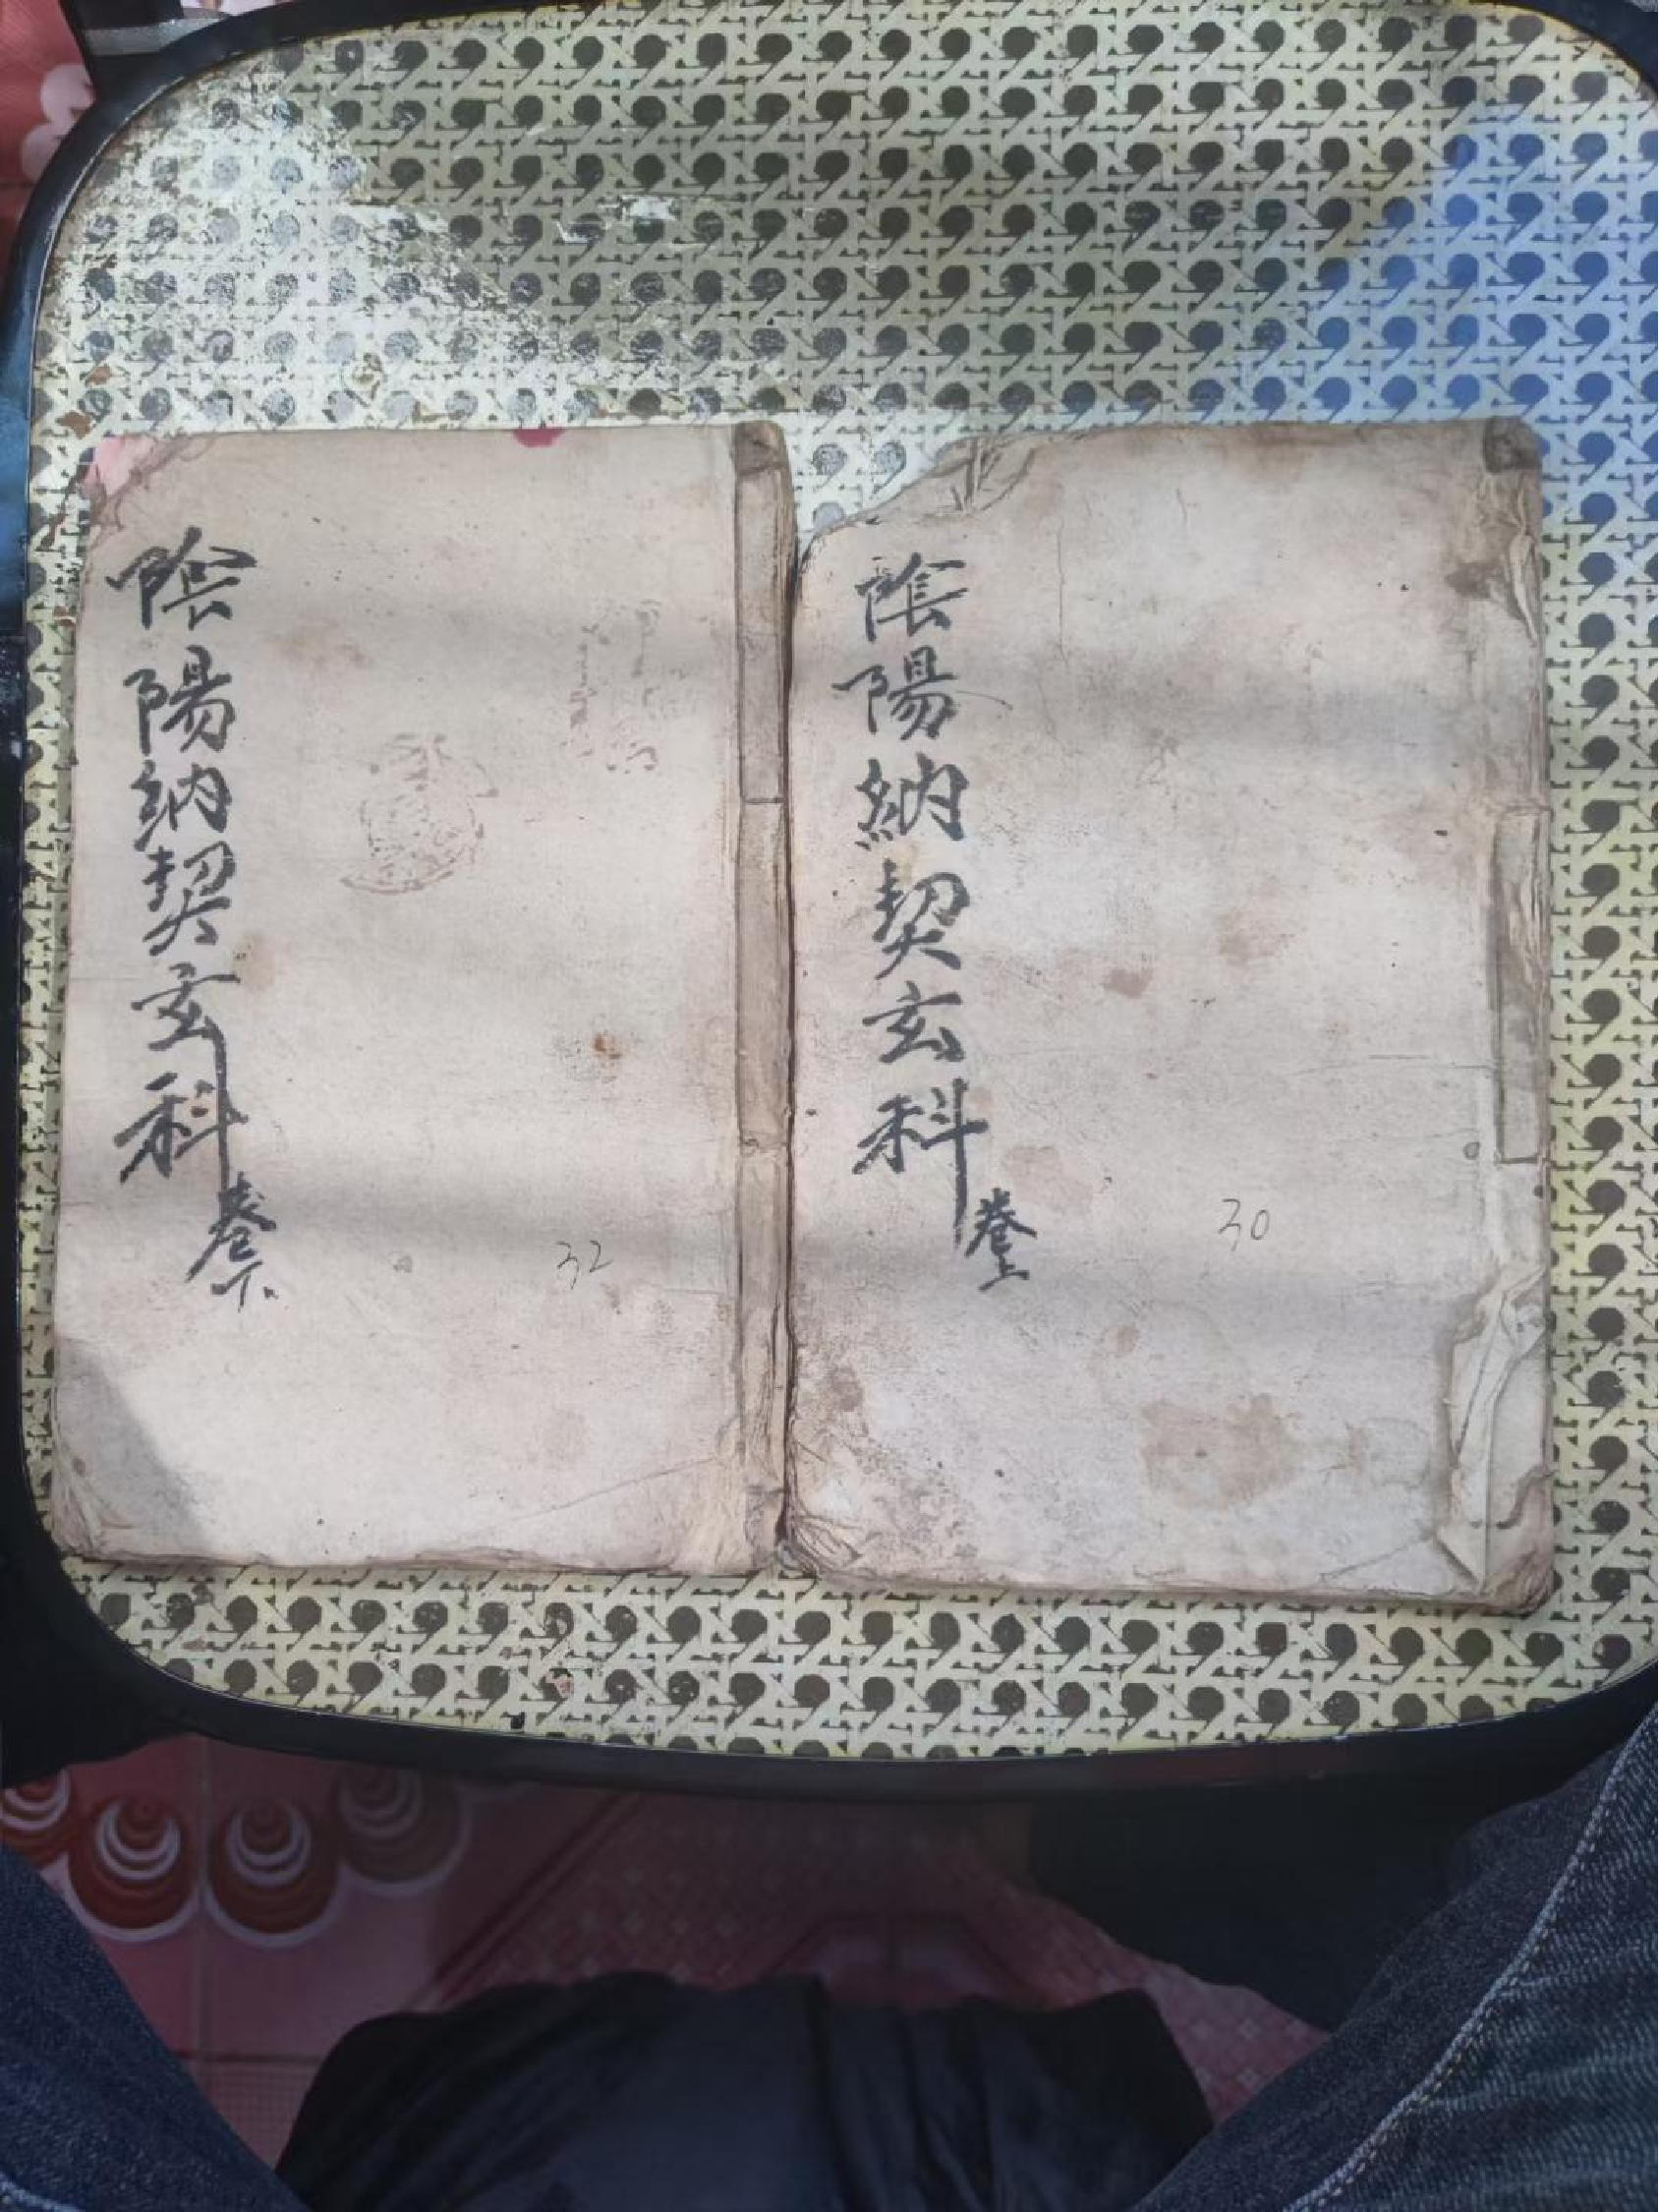 陰陽納契玄科
卷上
30
陰陽納契玄科
卷下
32